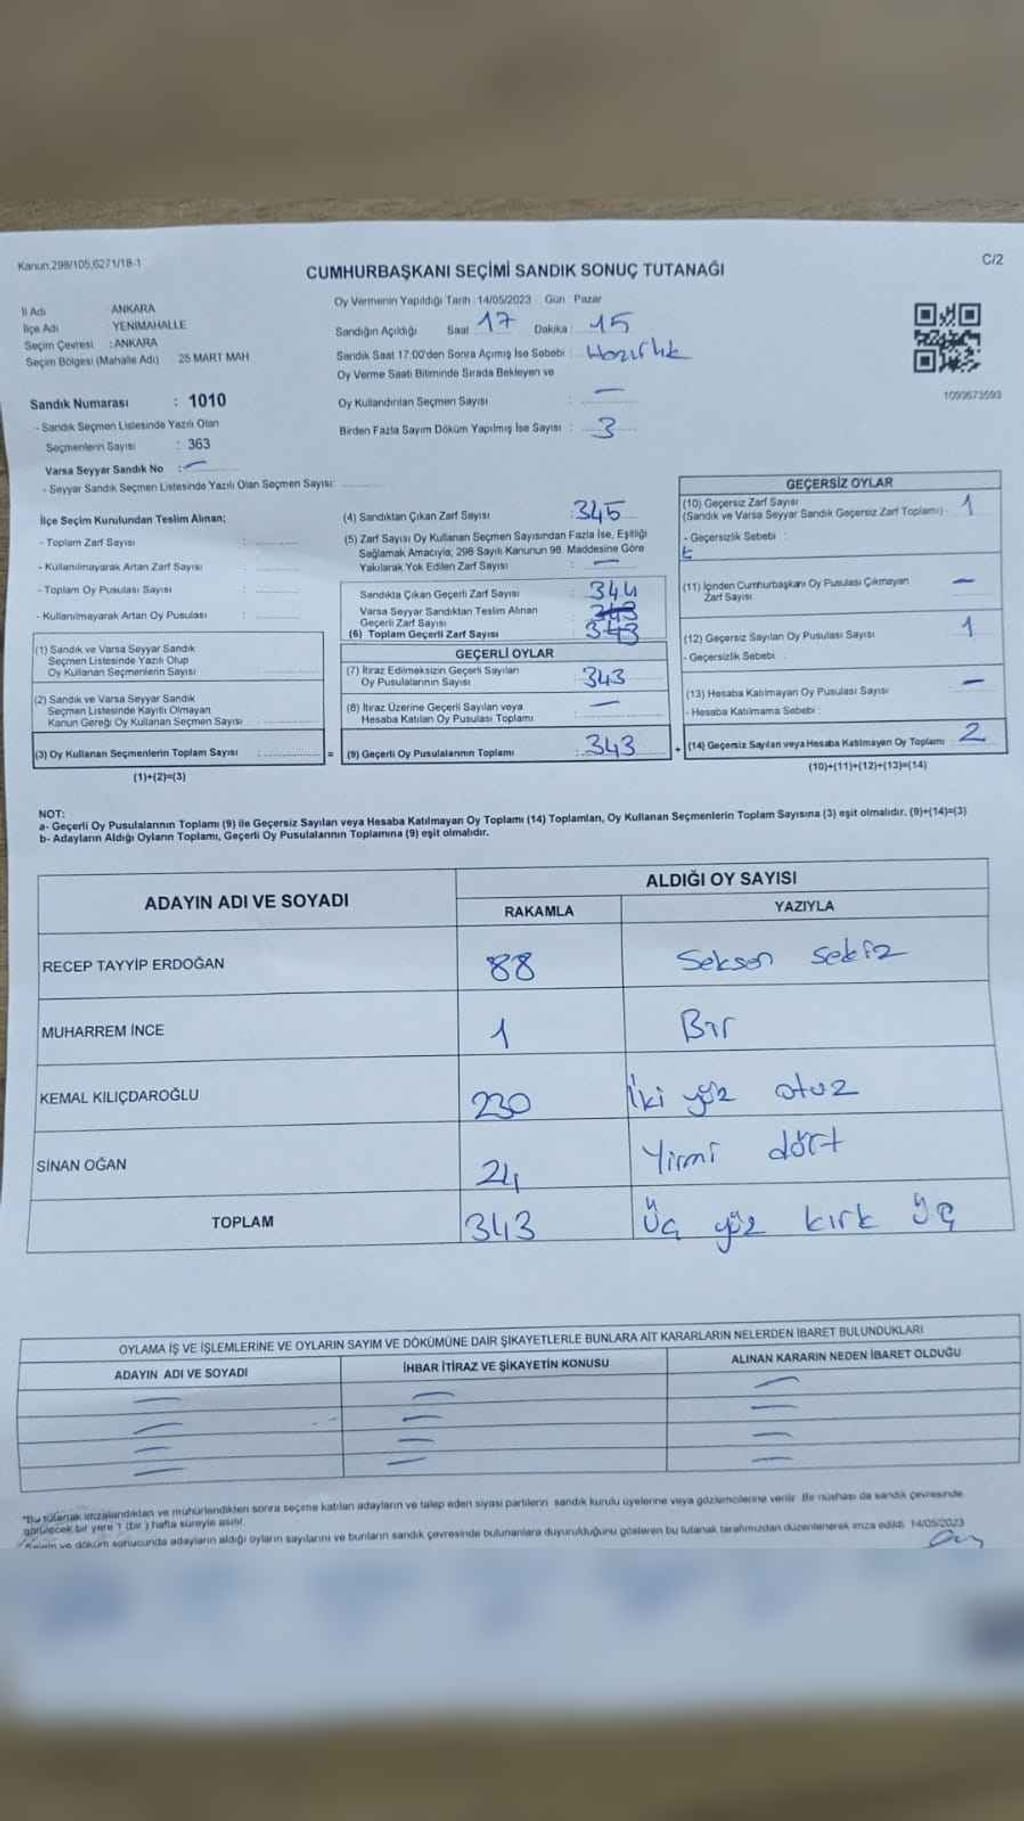 Kanun.298/105,6271/18-1
C/2
CUMHURBAŞKANI SEÇİMİ SANDIK SONUÇ TUTANAĞI
İl Adı ANKARA
İlçe Adı YENİMAHALLE
Seçim Çevresi :ANKARA
Seçim Bölgesi (Mahalle Adı) 25 MART MAH
Sandık Numarası : 1010
- Sandık Seçmen Listesinde Yazılı Olan
Seçmenlerin Sayısı : 363
Varsa Seyyar Sandık No : —
- Seyyar Sandık Seçmen Listesinde Yazılı Olan Seçmen Sayısı:
Oy Vermenin Yapıldığı Tarih 14/05/2023 Gün Pazar
Sandığın Açıldığı Saat 17 Dakika : 15
Sandık Saat 17:00'den Sonra Açılmış İse Sebebi : Hazırlık
Oy Verme Saati Bitiminde Sırada Bekleyen ve
Oy Kullandırılan Seçmen Sayısı : —
Birden Fazla Sayım Döküm Yapılmış İse Sayısı : 3
1093673593
İlçe Seçim Kurulundan Teslim Alınan;
- Toplam Zarf Sayısı :
- Kullanılmayarak Artan Zarf Sayısı :
- Toplam Oy Pusulası Sayısı :
- Kullanılmayarak Artan Oy Pusulası :
(1) Sandık ve Varsa Seyyar Sandık
Seçmen Listesinde Yazılı Olup
Oy Kullanan Seçmenlerin Sayısı
(2) Sandık ve Varsa Seyyar Sandık
Seçmen Listesinde Kayıtlı Olmayan
Kanun Gereği Oy Kullanan Seçmen Sayısı
(3) Oy Kullanan Seçmenlerin Toplam Sayısı :
(1)+(2)=(3)
=
(4) Sandıktan Çıkan Zarf Sayısı : 345
(5) Zarf Sayısı Oy Kullanan Seçmen Sayısından Fazla İse, Eşitliği
Sağlamak Amacıyla; 298 Sayılı Kanunun 98. Maddesine Göre
Yakılarak Yok Edilen Zarf Sayısı : —
Sandıkta Çıkan Geçerli Zarf Sayısı 344
Varsa Seyyar Sandıktan Teslim Alınan
Geçerli Zarf Sayısı 343
(6) Toplam Geçerli Zarf Sayısı 343
GEÇERLİ OYLAR
(7) İtiraz Edilmeksizin Geçerli Sayılan
Oy Pusulalarının Sayısı 343
(8) İtiraz Üzerine Geçerli Sayılan veya
Hesaba Katılan Oy Pusulası Toplamı —
(9) Geçerli Oy Pusulalarının Toplamı : 343
+
GEÇERSİZ OYLAR
(10) Geçersiz Zarf Sayısı
(Sandık ve Varsa Seyyar Sandık Geçersiz Zarf Toplamı) 1
- Geçersizlik Sebebi :
(11) İçinden Cumhurbaşkanı Oy Pusulası Çıkmayan
Zarf Sayısı —
(12) Geçersiz Sayılan Oy Pusulası Sayısı 1
- Geçersizlik Sebebi
(13) Hesaba Katılmayan Oy Pusulası Sayısı —
- Hesaba Katılmama Sebebi :
(14) Geçersiz Sayılan veya Hesaba Katılmayan Oy Toplamı 2
(10)+(11)+(12)+(13)=(14)
NOT:
a- Geçerli Oy Pusulalarının Toplamı (9) ile Geçersiz Sayılan veya Hesaba Katılmayan Oy Toplamı (14) Toplamları, Oy Kullanan Seçmenlerin Toplam Sayısına (3) eşit olmalıdır. (9)+(14)=(3)
b- Adayların Aldığı Oyların Toplamı, Geçerli Oy Pusulalarının Toplamına (9) eşit olmalıdır.
ADAYIN ADI VE SOYADI
ALDIĞI OY SAYISI
RAKAMLA YAZIYLA
RECEP TAYYİP ERDOĞAN 88 Seksen sekiz
MUHARREM İNCE 1 Bir
KEMAL KILIÇDAROĞLU 230 İki yüz otuz
SİNAN OĞAN 24 Yirmi dört
TOPLAM 343 Üç yüz kırk üç
OYLAMA İŞ VE İŞLEMLERİNE VE OYLARIN SAYIM VE DÖKÜMÜNE DAİR ŞİKAYETLERLE BUNLARA AİT KARARLARIN NELERDEN İBARET BULUNDUKLARI
ADAYIN ADI VE SOYADI İHBAR İTİRAZ VE ŞİKAYETİN KONUSU ALINAN KARARIN NEDEN İBARET OLDUĞU
— — —
— — —
— — —
— — —
"Bu tutanak imzalandıktan ve mühürlendikten sonra seçime katılan adayların ve talep eden siyasi partilerin sandık kurulu üyelerine veya gözlemcilerine verilir. Bir nüshası da sandık çevresinde
görülecek bir yere 1 (bir) hafta süreyle asılır.
Sayım ve döküm sonucunda adayların aldığı oyların sayılarını ve bunların sandık çevresinde bulunanlara duyurulduğunu gösteren bu tutanak tarafımızdan düzenlenerek imza edildi. 14/05/2023